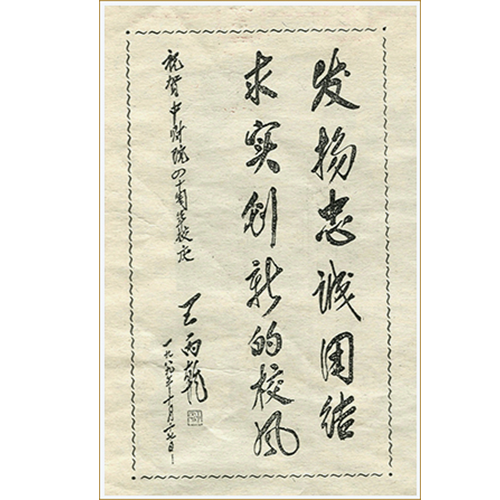 发扬忠诚团结
求实创新的校风
祝贺中财院四十周年校庆
王丙乾
一九八九年十月